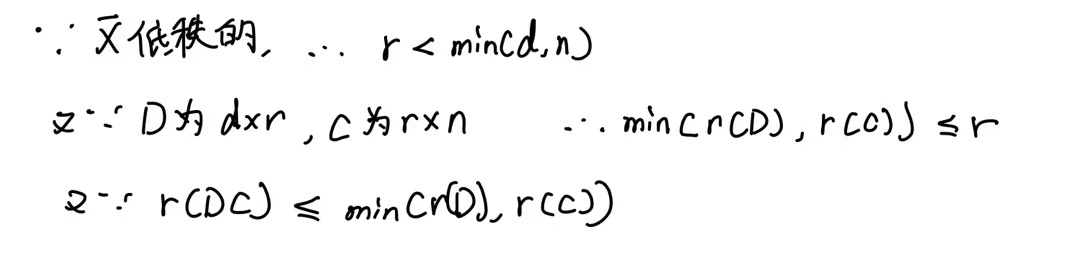 ∵ X̄低秩的, ∴ r < min(d,n)
又∵ D为d×r, C为r×n ∴ min(r(D), r(C)) ≤ r
又∵ r(DC) ≤ min(r(D), r(C))